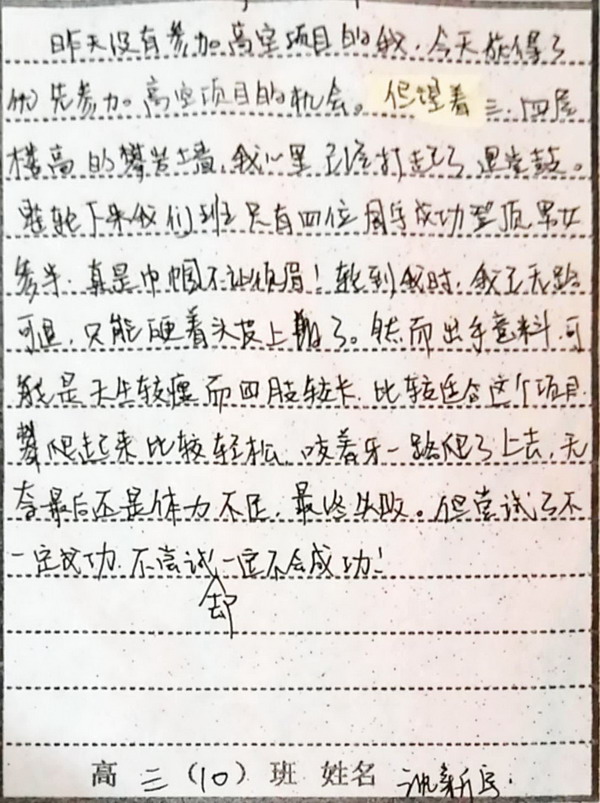 昨天没有参加高空项目的我,今天获得了
优先参加高空项目的机会。但望着三、四层
楼高的攀岩墙,我心里已经打起了退堂鼓。
一轮下来我们班只有四位同学成功登顶男女
参半,真是巾帼不让须眉!轮到我时,我已无路
可退,只能硬着头皮上了。然而出乎意料,可
能是天生较瘦而四肢较长,比较适合这个项目,
攀爬起来比较轻松,咬着牙一路爬了上去,无
奈最后还是体力不足,最终失败。但尝试了不
一定成功,不尝试却一定不会成功!
高三(10)班 姓名 沈新